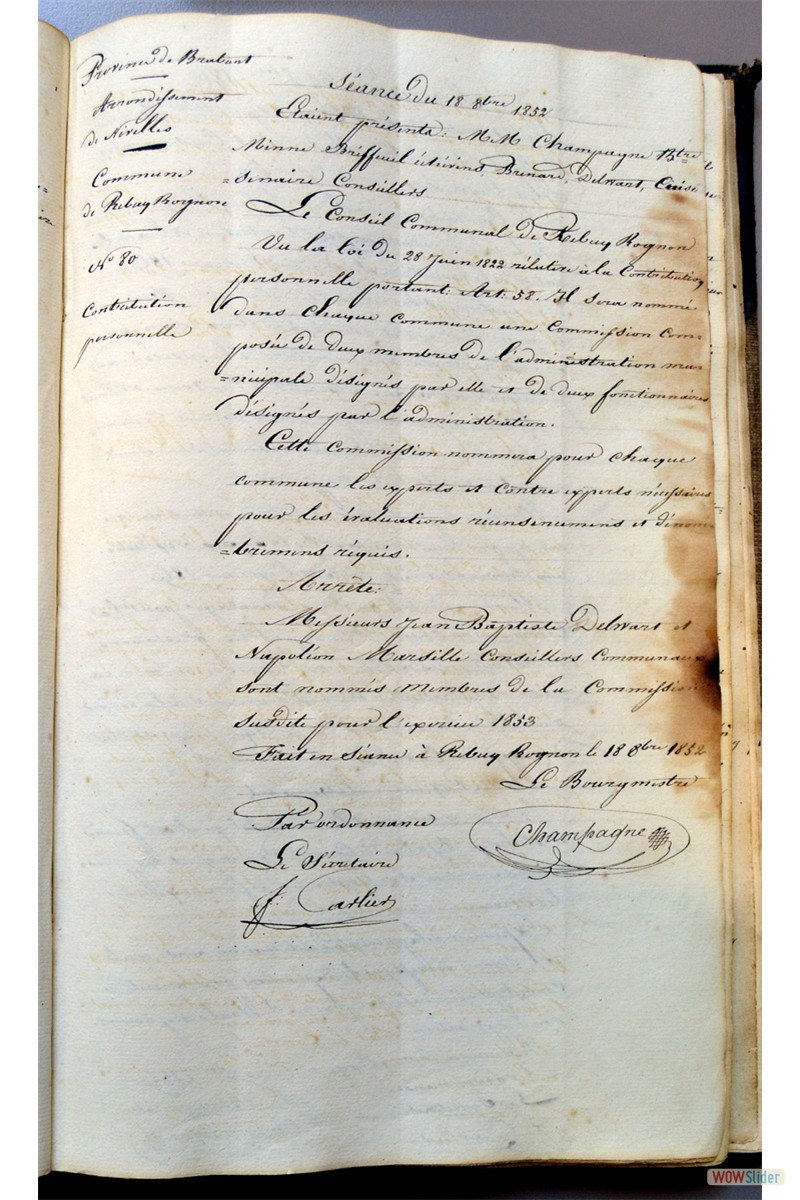 Province de Brabant
Arrondissement
de Nivelles
Commune
de Rebecq Rognon
N° 80
Contribution
personnelle
Séance du 18 8bre 1852
Etaient présents: M.M. Champagne Bstre
Minne Briffeuil échévins, Brenard, Delwart,
=senaire Conseillers
Le Conseil Communal de Rebecq Rognon
Vu la loi du 28 Juin 1822 rélative à la Contribution
personnelle portant. Art. 58. Il sera nommé
dans chaque commune une Commission com=
posée de deux membres de l'administration mu=
=nicipale désignés par elle et de deux fonctionnaires
désignés par l'administration.
Cette commission nommera pour chaque
commune les experts et contre experts nécessaires
pour les évaluations récensemens et dénom=
=bremens réquis.
Arrête:
Messieurs Jean Baptiste Delwart et
Napoléon Marsille Conseillers Communaux
sont nommés membres de la Commission
susdite pour l'exercice 1853
Fait en séance à Rebecq Rognon le 18 8bre 1852
Le Bourgmestre
Champagne
Par ordonnance
Le Sécretaire
f. Carlier
WOWSlider